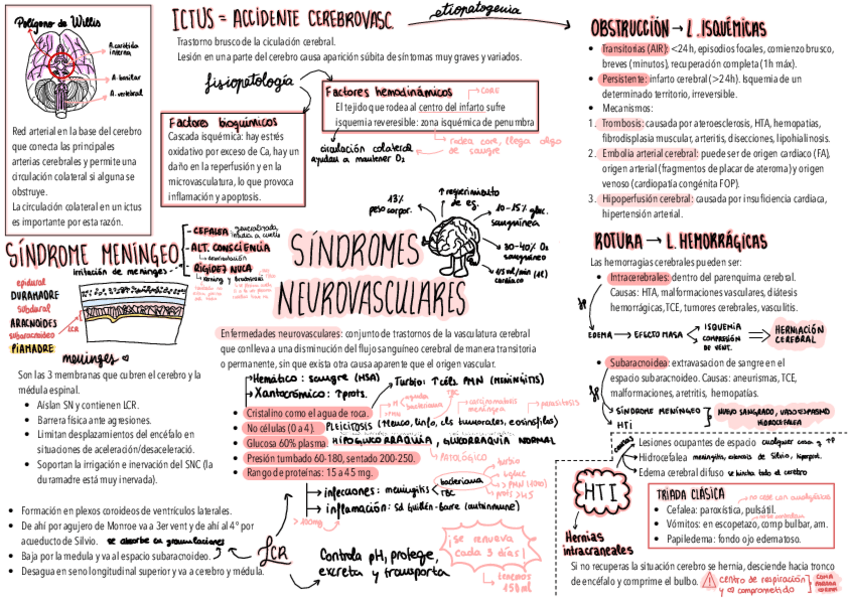 ICTUS = ACCIDENTE CEREBROVASC.
etiopatogenia
Trastorno brusco de la ciculación cerebral.
Lesión en una parte del cerebro causa aparición súbita de síntomas muy graves y variados.
Polígono de Willis
A. carótida
interna
A. basilar
A. vertebral
Red arterial en la base del cerebro
que conecta las principales
arterias cerebrales y permite una
circulación colateral si alguna se
obstruye.
La circulación colateral en un ictus
es importante por esta razón.
fisiopatología
Factores bioquímicos
Cascada isquémica: hay estrés
oxidativo por exceso de Ca, hay un
daño en la reperfusión y en la
microvasculatura, lo que provoca
inflamación y apoptosis.
Factores hemodinámicos
CORE
El tejido que rodea al centro del infarto sufre
isquemia reversible: zona isquémica de penumbra
circulación colateral
ayudan a mantener O2
rodea core, llega algo
de sangre
OBSTRUCCIÓN → L. ISQUÉMICAS
Transitorias (AIR): <24h, episodios focales, comienzo brusco,
breves (minutos), recuperación completa (1h máx).
Persistente: infarto cerebral (>24h). Isquemia de un
determinado territorio, irreversible.
Mecanismos:
1. Trombosis: causada por ateroesclerosis, HTA, hemopatías,
fibrodisplasia muscular, arteritis, disecciones, lipohialinosis.
2. Embolia arterial cerebral: puede ser de origen cardiaco (FA),
origen arterial (fragmentos de placar de ateroma) y origen
venoso (cardiopatía congénita FOP).
3. Hipoperfusión cerebral: causada por insuficiencia cardiaca,
hipertensión arterial.
ROTURA → L. HEMORRÁGICAS
Las hemorragias cerebrales pueden ser:
Intracerebrales: dentro del parenquima cerebral.
Causas: HTA, malformaciones vasculares, diátesis
hemorrágicas, TCE, tumores cerebrales, vasculitis.
EDEMA → EFECTO MASA
ISQUEMIA
COMPRESIÓN
DE VENT.
HERNIACIÓN
CEREBRAL
Subaracnoidea: extravasacion de sangre en el
espacio subaracnoideo. Causas: aneurismas, TCE,
malformaciones, aretritis, hemopatías.
SÍNDROME MENÍNGEO
HTi
NUEVO SANGRADO, VASOESPASMO
HIDROCEFALIA
SÍNDROME MENÍNGEO
irritación de meninges
CEFALEA
ALT. CONSCIENCIA
RIGIDEZ NUCA
epidural
DURAMADRE
subdural
ARACNOIDES
subaracnoideo
PIAMADRE
LCR
meninges
Son las 3 membranas que cubren el cerebro y la
médula espinal.
Aislan SN y contienen LCR.
Barrera física ante agresiones.
Limitan desplazamientos del encéfalo en
situaciones de aceleración/desaceleració.
Soportan la irrigación e inervación del SNC (la
duramadre está muy inervada).
SÍNDROMES
NEUROVASCULARES
13%
peso corpor.
↑ requerimiento
de eg.
10-15% gluc.
sanguínea
30-40% O2
sanguíneo
Enfermedades neurovasculares: conjunto de trastornos de la vasculatura cerebral
que conlleva a una disminución del flujo sanguíneo cerebral de manera transitoria
o permanente, sin que exista otra causa aparente que el origen vascular.
Hemático: sangre (HSA)
Xantocrómico: ↑ prots.
Turbio: ↑ céls. PMN (MENINGITIS)
Cristalino como el agua de roca.
No células (0 a 4).
PLEICITOSIS
Glucosa 60% plasma.
HIPOGLUCORRAQUIA, GLUCORRAQUIA NORMAL
PATOLÓGICO
Presión tumbado 60-180, sentado 200-250.
Rango de proteínas: 15 a 45 mg.
infecciones: meningitis
bacteriana
TBC
inflamación: sd guillén-barre (autoinmune)
turbio
Formación en plexos coroideos de ventrículos laterales.
De ahí por agujero de Monroe va a 3er vent y de ahi al 4º por
acueducto de Silvio.
se absorbe en granulaciones
Baja por la medula y va al espacio subaracnoideo.
Desagua en seno longitudinal superior y va a cerebro y médula.
LCR
Controla pH, protege,
excreta y transporta
¡se renueva
cada 3 días!
tenemos
150ml
HTI
causas
Lesiones ocupantes de espacio
Hidrocefalia
Edema cerebral difuso
se hincha todo el cerebro
TRÍADA CLÁSICA
Cefalea: paroxística, pulsátil.
Vómitos: en escopetazo, comp bulbar, am.
Papiledema: fondo ojo edematoso.
Hernias
intracraneales
Si no recuperas la situación cerebro se hernia, desciende hacia tronco
de encéfalo y comprime el bulbo.
centro de respiración
y ♡ comprometido
COMA
PARADA